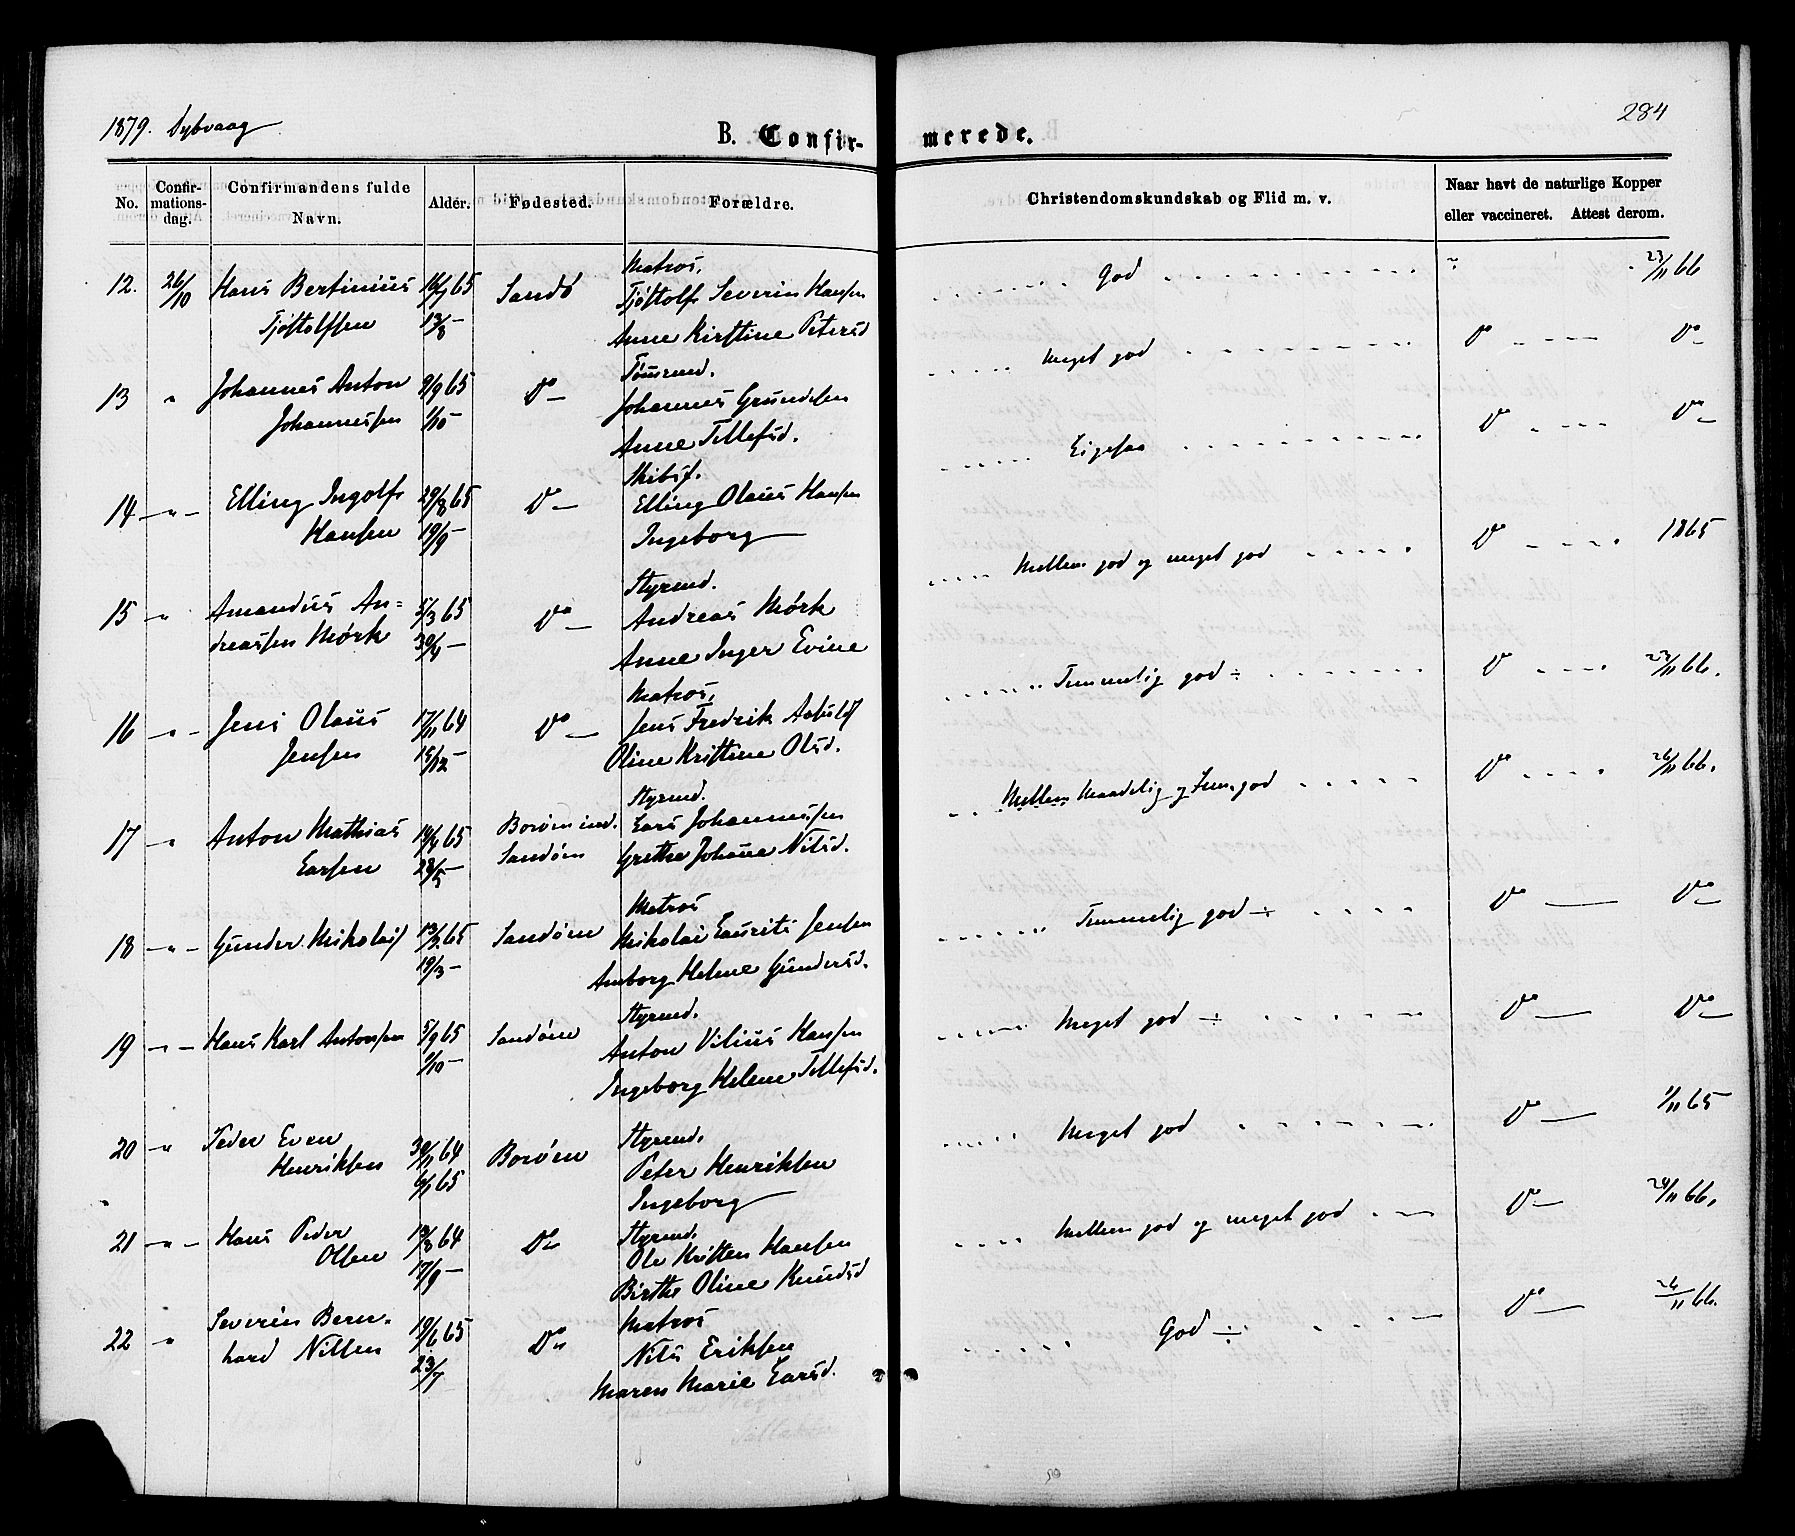 1879. Dybvaag
284
B. Confir-merede.
No. Confir-mations-dag. Confirmandens fulde Navn. Alder. Fødested. Forældre. Christendomskundskab og Flid m. v. Naar havt de naturlige Kopper eller vaccineret. Attest derom.
Matros.
12. 26/10 Hans Bertinius 16/7 65 Sandø Tjøstolf Severin Hansen God 23/11 66
Tjøstolfsen 13/8 — Anne Kirstine Petersd
Tømrmd.
13 " Johannes Anton 9/9 65 Do — Johannes Grundesen Meget god Do Do —
Johannessen 1/10 — Anne Tellefsd.
Skibsf.
14 — " — Elling Ingolf 29/8 65 Do — Elling Olaus Hansen Ligesaa Do Do —
Hansen 19/9 — Ingeborg —
Styrmd.
15 — " Amandus An= 5/3 65 Do — Andreas Mørk Mellem god og meget god Do 1865
dreassen Mørk 30/4 — Anne Inger Evine
Matros.
16 — " — Jens Olaus 17/11 64 Do — Jens Fredrik Temmelig god ÷ Do 23/11 66.
Jensen 15/12 — Oline Kristine Olsd.
Styrmd.
17 — " Anton Mathias 14/4 65 Borøen ind. Lars Johannessen Mellem Maadelig og Tem. god Do 26/11 66.
Larsen 28/5 — Sandøen Grethe Johane Nilsd.
Matros
18 — " — Gunder Nikolai 13/2 65 Sandøen Nikolai Laurits Jensen Temmelig god ÷ Do — Do —
19/3 — Anborg Helene Gundersd.
Styrmd.
19 — " — Hans Karl Antonsen 5/9 65 Sandøen Anton Vilius Hansen Meget god ÷ Do — Do —
1/10 — Ingeborg Helene Tellefsd.
20 — " Peder Even 30/11 64 Borøen Styrmd. Meget god Do — 1/11 65
Henriksen 6/1 65 Peter Henriksen
Ingeborg —
21 — " — Hans Peder 19/8 64 Do Styrmd. Mellem god og meget god Do — 24/11 66.
Olsen 17/9 — Ole Kristen Hansen
Birthe Oline Knudsd
22 — " Severin Bern- 19/6 65 Do Matros God ÷ Do — 26/11 66.
hard Nilsen 23/7 — Nils Eriksen
Maren Marie Larsd.